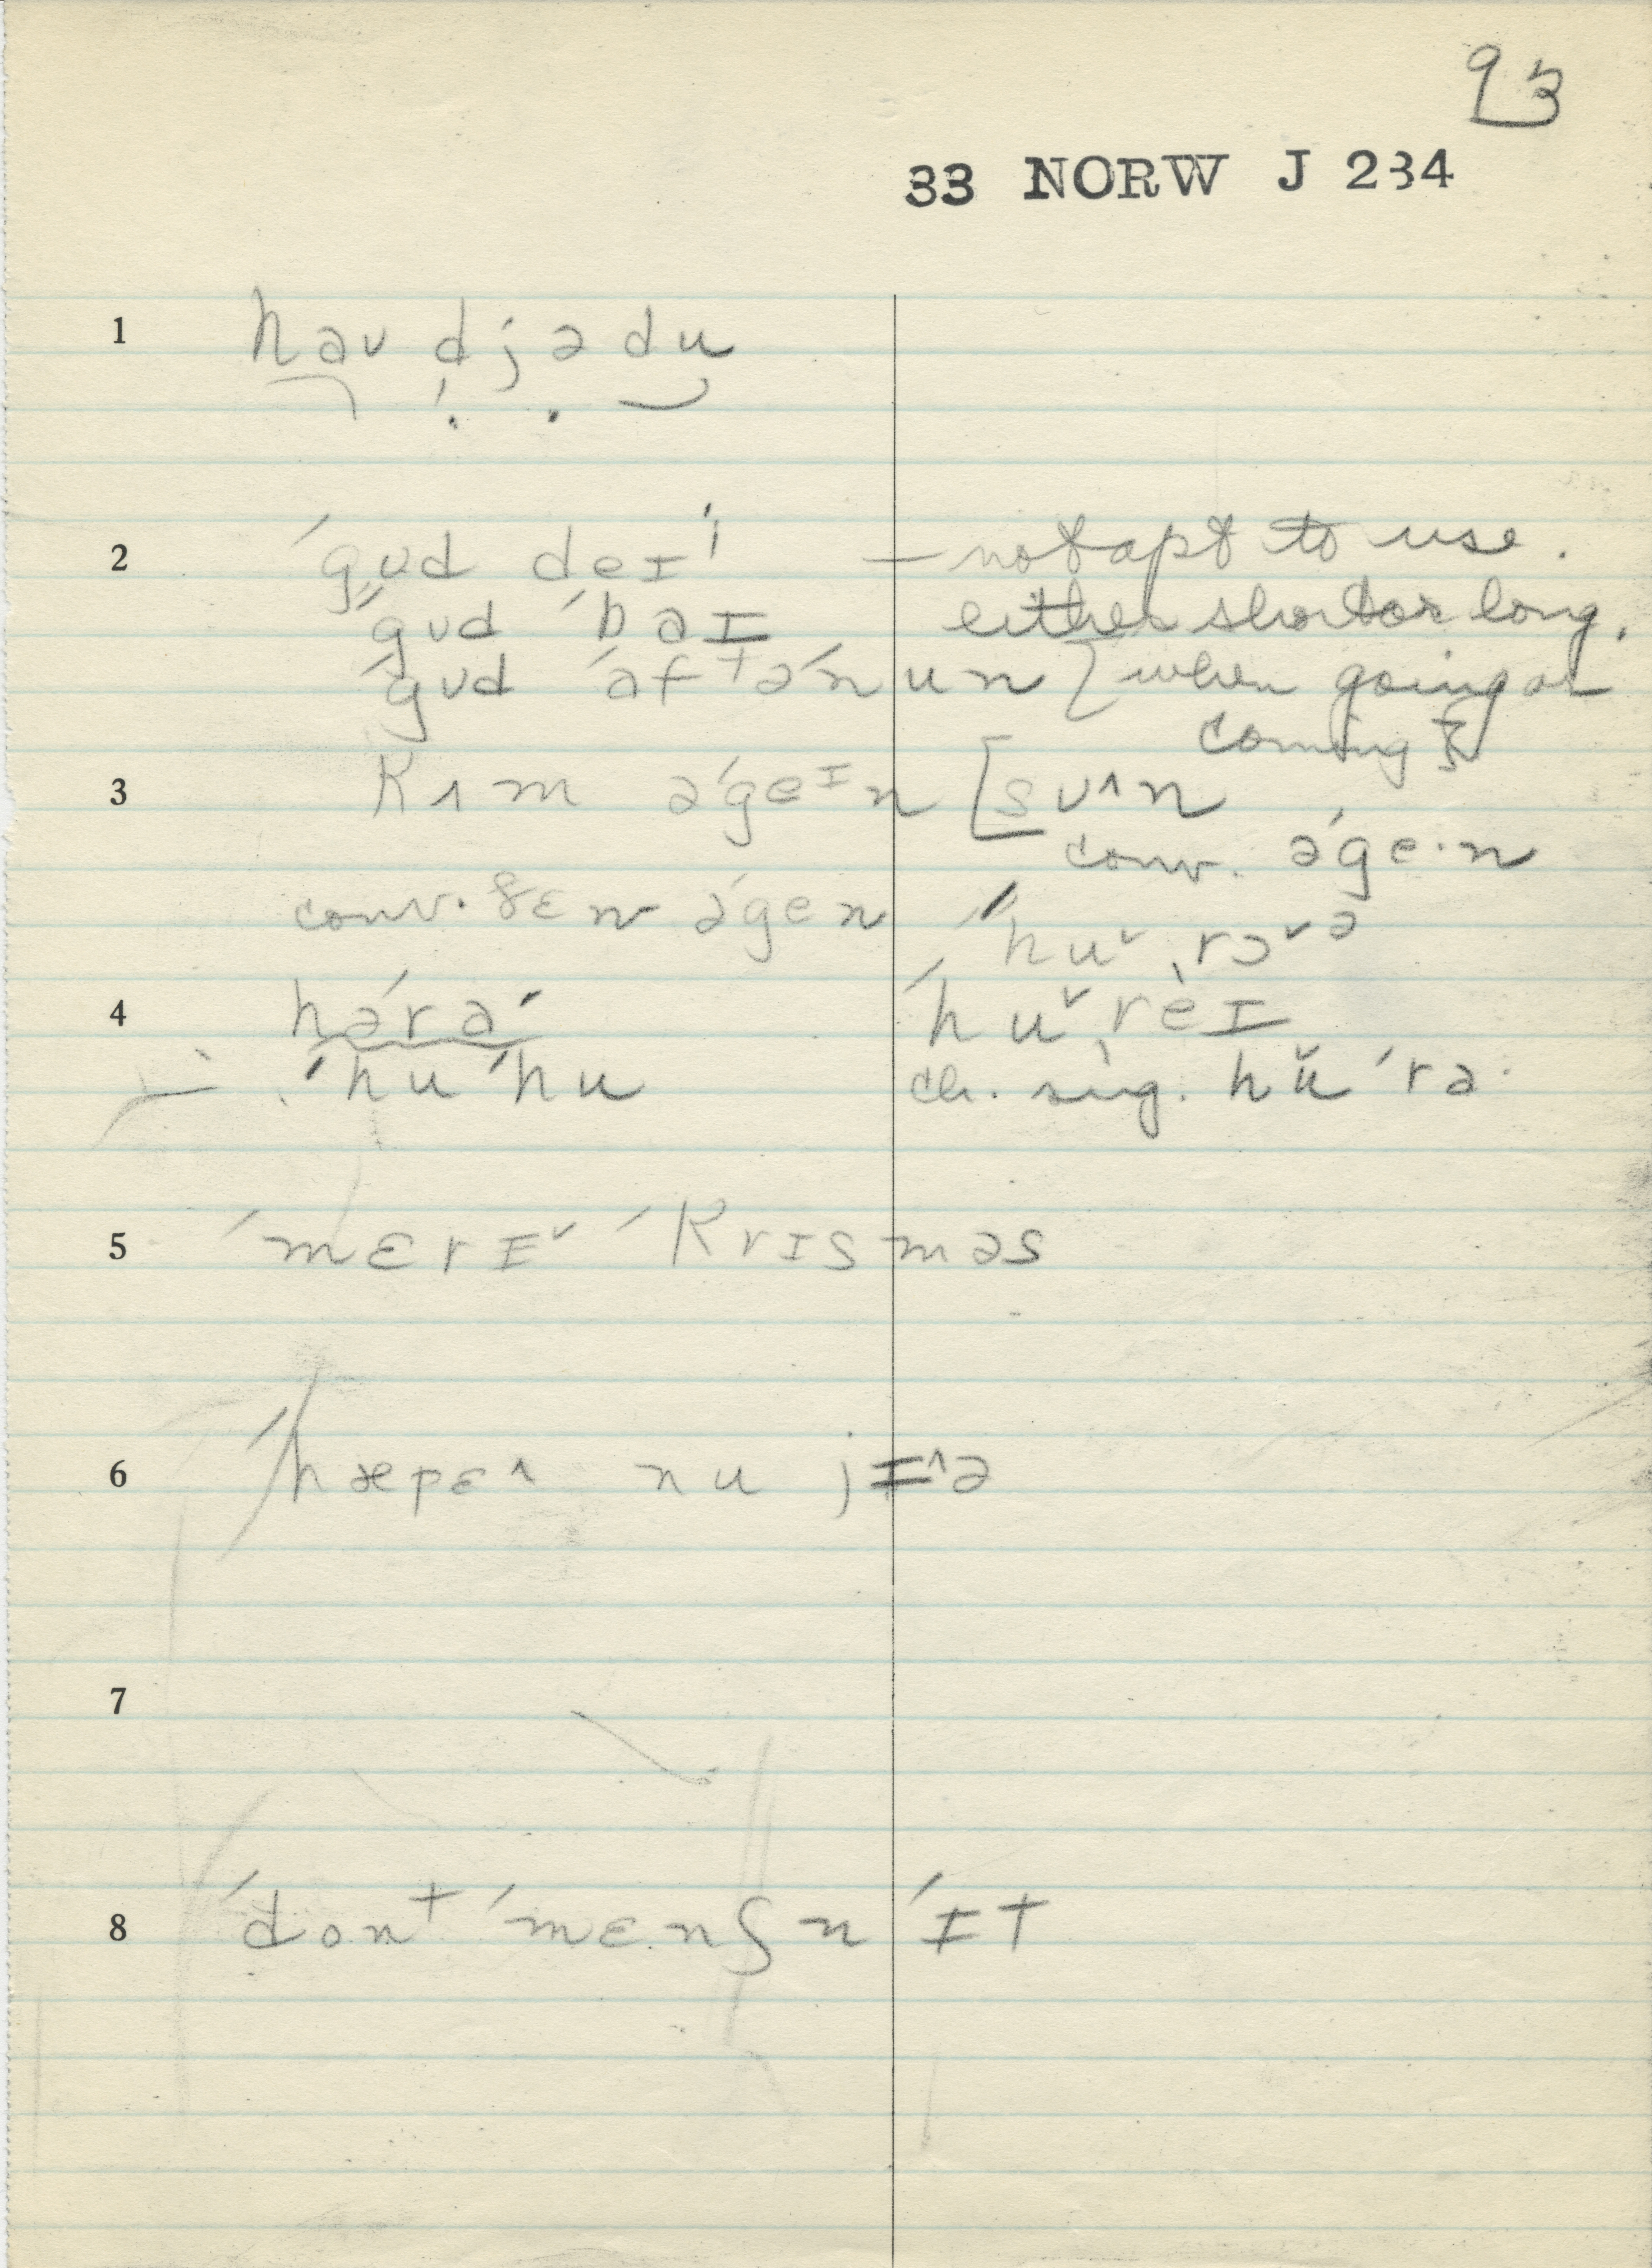 93
33 NORW J 234
1 haʊ djə du
2 ˈgʊd deɪˈˈ — not apt to use.
ˈgʊd ˈbaɪ either short or long.
ˈgʊd ˈaftəˈnun { when going or
coming }
3 kʌm əˈgeɪn [sʊ^n
conv. əˈge·n
conv. sɛn əˈgen ˈhuˇˌrɔˇə
4 həˈraˈ ˈhuˇˌrèɪ
ˈhu ˈhu ch. sig. hŭˈra·
5 ˈmɛrɪˇ ˈkrɪsməs
6 ˈhæpɛ^ nu jɪ^ə
7
8 ˈdont ˈmɛnʃn ˈɪt